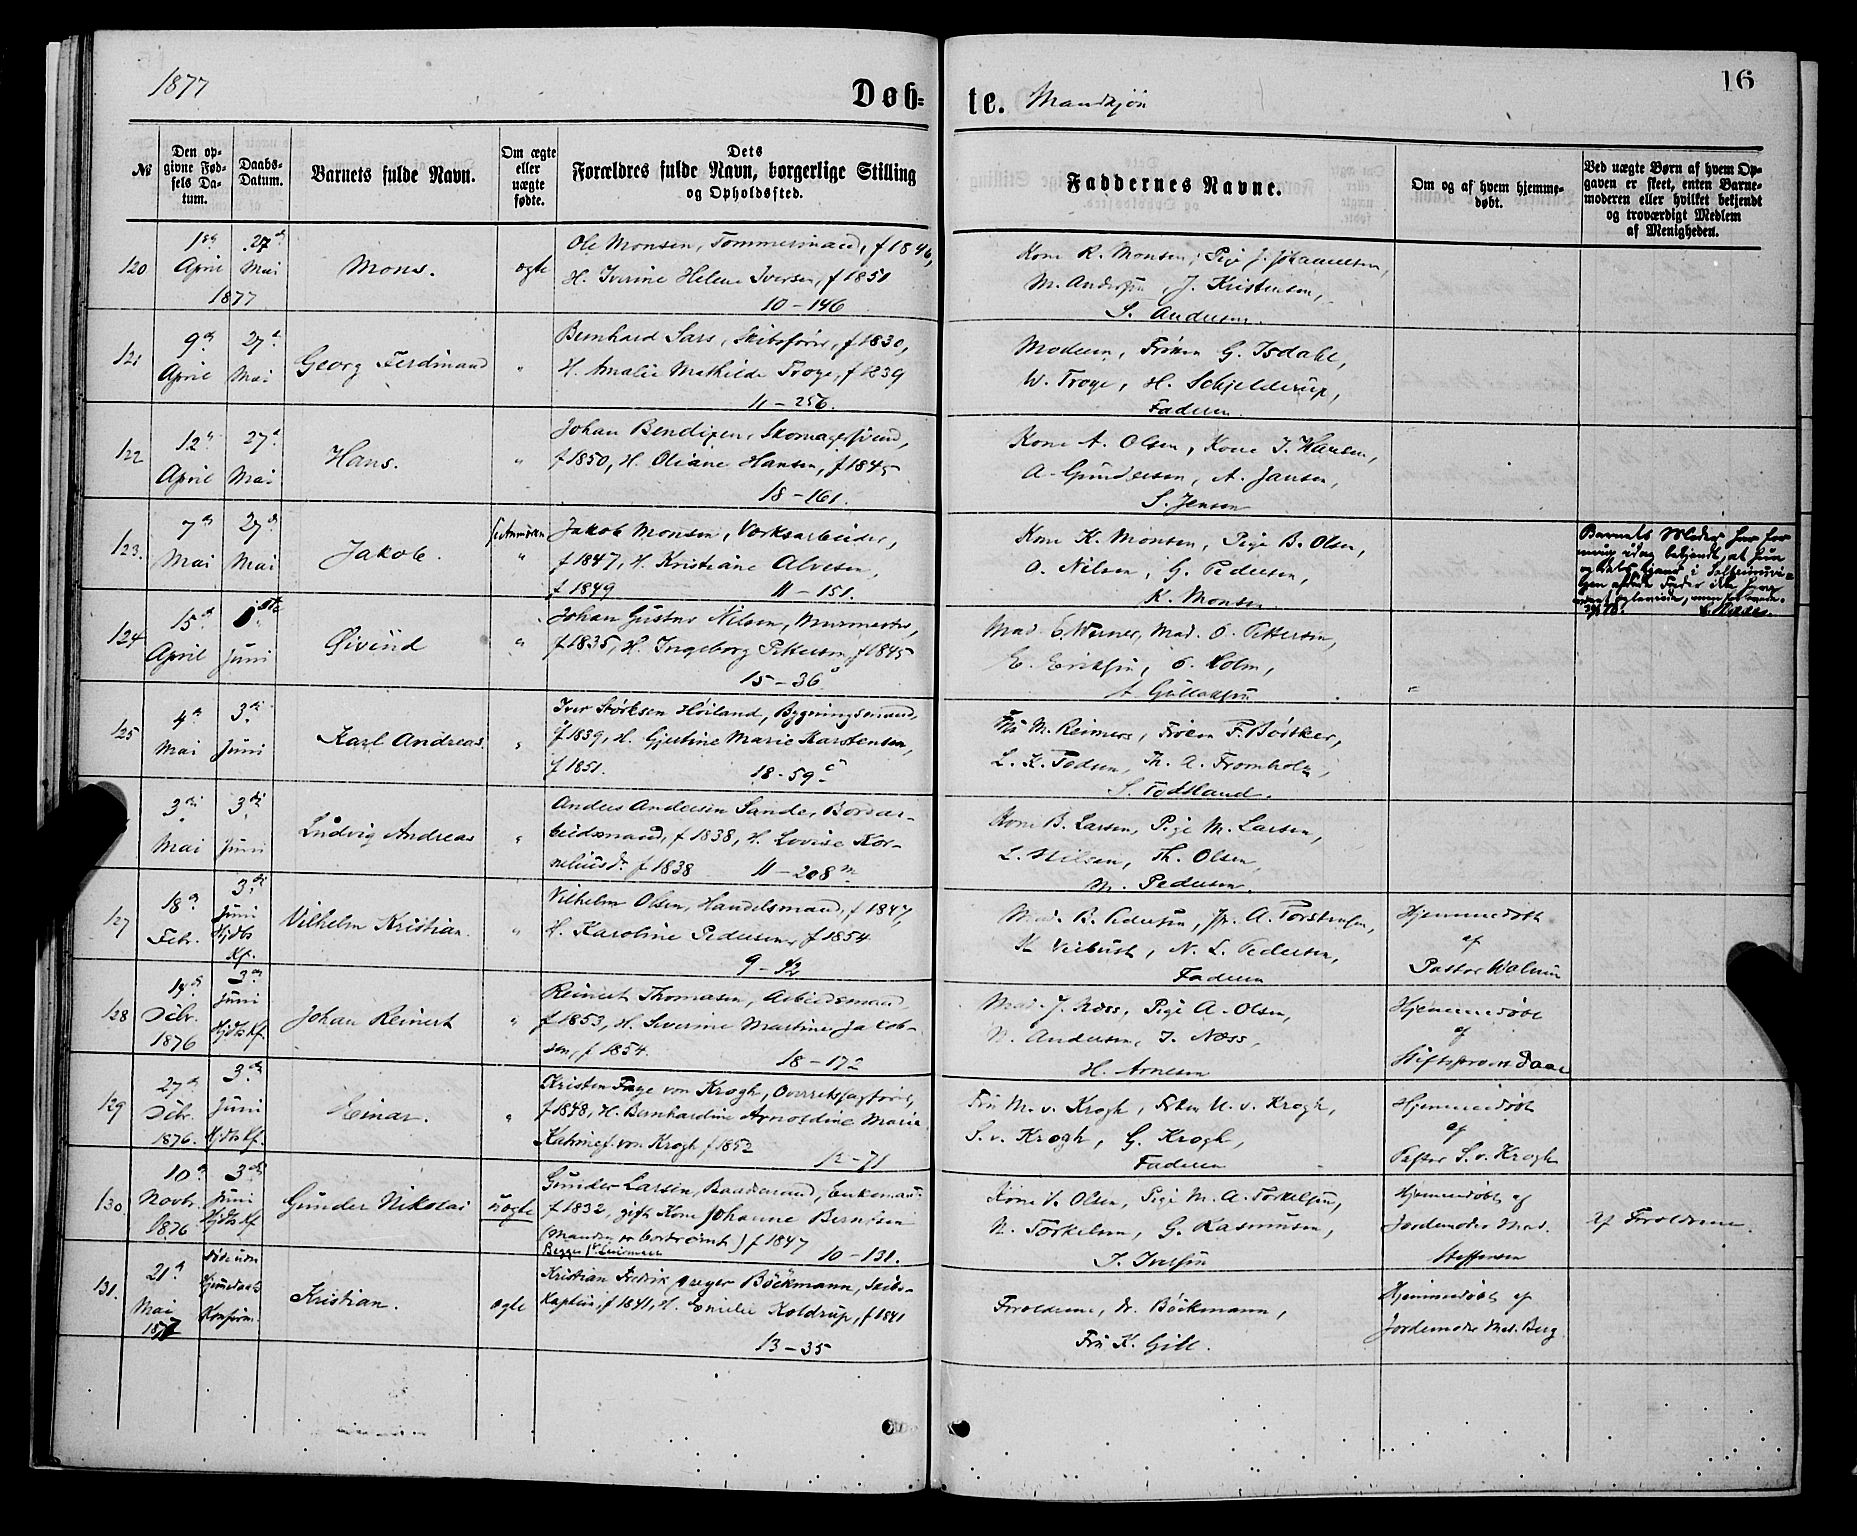 1877
Døb-
te. Mandkjön
16
№
Den opgivne Fødsels Datum.
Daabs-Datum.
Barnets fulde Navn.
Om ægte eller uægte fødte.
Dets Forældres fulde Navn, borgerlige Stilling og Opholdssted.
Faddernes Navne.
Om og af hvem hjemmedøbt.
Ved uægte Børn af hvem Opgaven er skeet, enten Barnemoderen eller hvilket bekjendt og troværdigt Medlem af Menigheden.
120
April 1877
27 Mai
Mons.
ægte
Ole Monsen, Tømmermand, f 1846,
H. Iverine Helene Iversen, f 1851
10 - 146
Kone R. Monsen, Pige J. Johannesen,
M. Andersen, J. Kristensen,
S. Andersen.
121
9 April
27 Mai
Georg Ferdinand
"
Bernhard Sars, Skibsfører, f 1830,
H. Amalie Mathilde Troye, f 1839
11 - 256.
Moderen, Frøken G. Isdahl,
W. Troye, H. Schjelderup,
Faderen.
122
12 April
27 Mai
Hans.
"
Johan Bendixen, Skomagersvend,
f 1850, H. Oliane Hansen, f 1845
18 - 161.
Kone A. Olsen, Kone J. Hansen,
A. Gundersen, A. Jansen,
S. Jensen
123.
7 Mai
27 Mai
Jakob.
"
Jakob Monsen, Værksarbeider,
f 1847, H. Kristiane Alvesen,
f 1849 11 - 151.
Kone K. Monsen, Pige B. Olsen,
O. Nilsen, G. Pedersen,
K. Monsen
Barnets Moder har for
mig idag bekjendt, at hun
124
15 April
Juni
Øivind
"
Johan Gustav Nilsen, Murmester,
f 1835, H. Ingeborg Petersen, f 1845
15 - 36
Mad. C. Werner, Mad. O. Pettersen,
E. Eriksen, O. Holm,
A. Gullaksen
125
4 Mai
3 Juni
Karl Andreas.
"
Iver Størksen Høiland, Bygningsmand,
f 1839, H. Gjertine Marie Karstensen,
f 1851. 18 - 59
Fru M. Reimers, Frøken F. Bøtker,
L. K. Todsen, Th. A. Fromholz,
S. Fodstland.
3 Mai
3 Juni
Ludvig Andreas
"
Anders Andersen Sande, Bordar-
beidsmand, f 1838, H. Lovise Kor-
neliusdr f 1838 11 - 208
Kone B. Larsen, Pige M. Larsen,
L. Nilsen, Th. Olsen
M. Pedersen.
127
18 Febr.
3 Juni Hjdbs Kf.
Vilhelm Kristian.
"
Vilhelm Olsen, Handelsmand, f 1847,
H. Karoline Pedersen, f 1854
9 - 42
Mad. B. Pedersen, A. Torstensen,
N. L. Pedersen,
Faderen
Hjemmedøbt
af
Pastor Walnum
128
Dcbr. 1876
3 Juni Hjdbs Kf.
Johan Reinert
"
Reinert Thomasen, Arbeidsmand,
f 1853, H. Severine Martine Jakob-
sen, f 1854. 18 - 172
Mad. J. Næss, Pige A. Olsen,
N. Andersen, J. Næss,
H. Arnesen
Hjemmedøbt
af
Stiftsprovst Daae
129
27 Dcbr. 1876.
3 Juni Hjdbs Kf.
Einar.
"
Kristen Faye von Krogh, Overretssagfører,
f 1848, H. Bernhardine Arnoldine Marie
von Krogh f 1852 12 - 71
Fru M. v. Krogh, Frken U. v. Krogh,
S. v. Krogh, G. Krogh,
Faderen
Hjemmedøbt
af
Pastor S. v. Krogh
130.
10 Novbr. 1876
3 Juni Hjdbs Kf
Gunder Nikolai
uægte
Gunder Larsen, Baadsmand, Enkemand
f 1832, gift Kone Johanne Berntsen
(Manden er bortrømt) f 1847 10 - 131.
Kone A. Olsen, Pige M. A. Torkelsen,
N. Torkelsen, G. Rasmussen,
J. Iversen
Hjemmedøbt af
Jordemoder Mad.
Steffensen
Af Forældrene.
131.
21 Mai 1877
Død uden Hjemmedaabs Konfirm.
Kristian.
ægte
Kristian Fredrik Greger Böckmann, Skibs-
kaptein, f 1841, H. Emilie Koldrup, f 1841
13 - 35
Forældrene, Dr. Böckmann,
Fru K. Gill.
Hjemmedøbt af
Jordemoder Mad. Berg